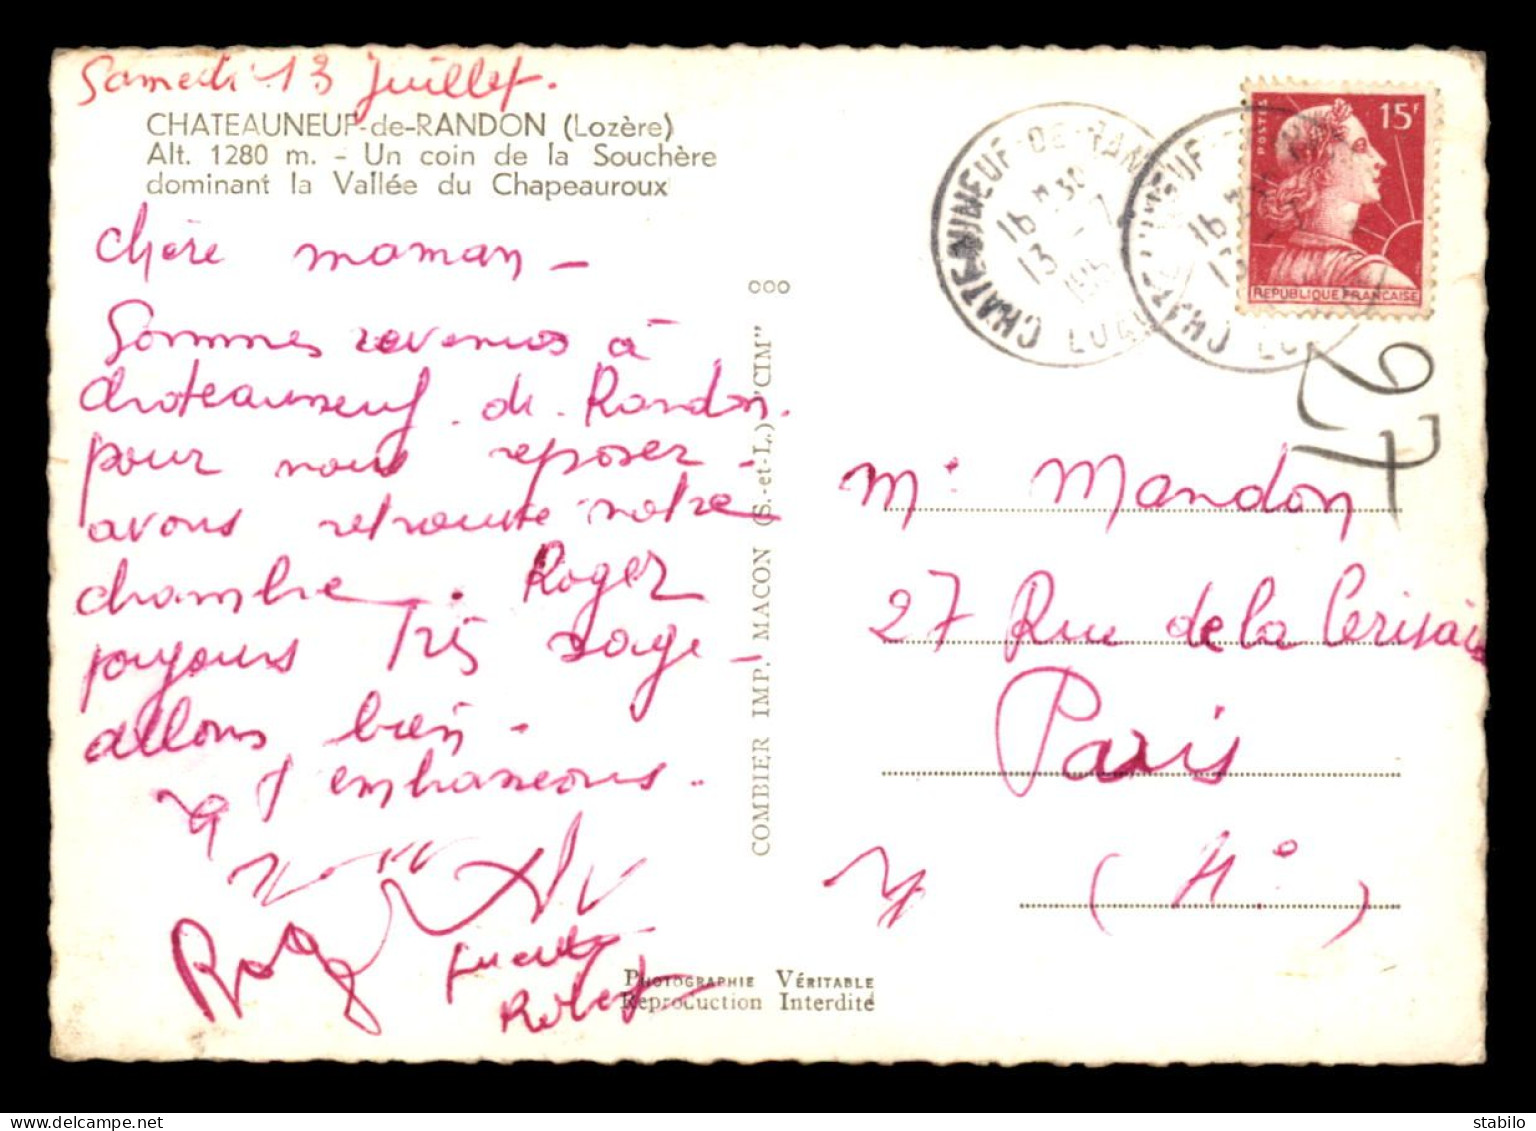 Samedi 13 Juillet.
CHATEAUNEUF-de-RANDON (Lozère)
Alt. 1280 m. - Un coin de la Souchère
dominant la Vallée du Chapeauroux
chère maman -
Sommes revenus à
chateauneuf. de. Randon.
pour nous reposer -
avons retrouvé notre
chambre. Roger
toujours très sage -
allons bien -
t'embrassons.
Roger
Lucette
Robert
ooo
COMBIER IMP. MACON (S.-et-L.) "CIM"
PHOTOGRAPHIE VÉRITABLE
Reproduction Interdite
CHATEAUNEUF-DE-RAN
16 H 30
13 -7
CHAT NEUF
16
POSTES
15F
REPUBLIQUE FRANCAISE
97
Me Mandon
27 Rue de la Cerisaie
Paris
(4e)
stabilo